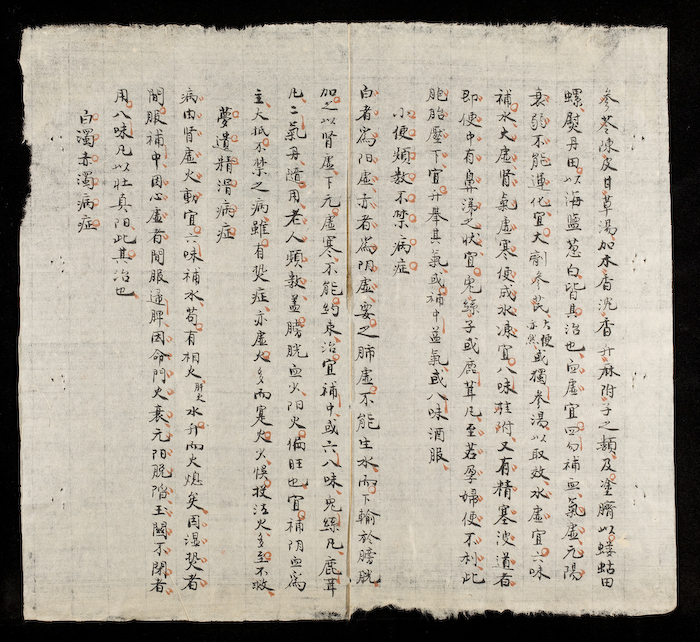 參苓陳皮甘草湯加木香沉香升麻附子之類及塗臍以螻蛄田
螺熨丹田以海鹽蔥白皆其治也血虛宜四勿補血氣虛元陽
衰弱不能運化宜大劑參芪大便亦然或獨參湯以取效水虛宜六味
補水火虛腎氣虛寒便成水凍宜八味桂附又有精塞溲道者
即便中有鼻涕之狀宜兔絲子或鹿茸凡至若孕婦便不利此
胞胎壓下宜升舉其氣或補中益氣或八味酒服
小便頻數不禁病症
白者爲阳虛赤者爲阴虛要之肺虛不能生水而下輸於膀胱
加之以腎虛下元虛寒不能約束治宜補中或六八味兔絲凡鹿茸
凡二氣丹隨用老人頻数盖膀胱血火阳火偏旺也宜補阴血爲
主大抵不禁之病雖有熱症亦虛火多而寔火火悞投治火多至不救
夢遺精滑病症
病由腎虛火動宜六味補水苟有相火肝火水升而火熄矣因湿热者
間服補中因心虛者間服遠脾因命門火衰元阳脫陷玉關不閉者
用八味凡以壯真阳此其治也
白濁赤濁病症